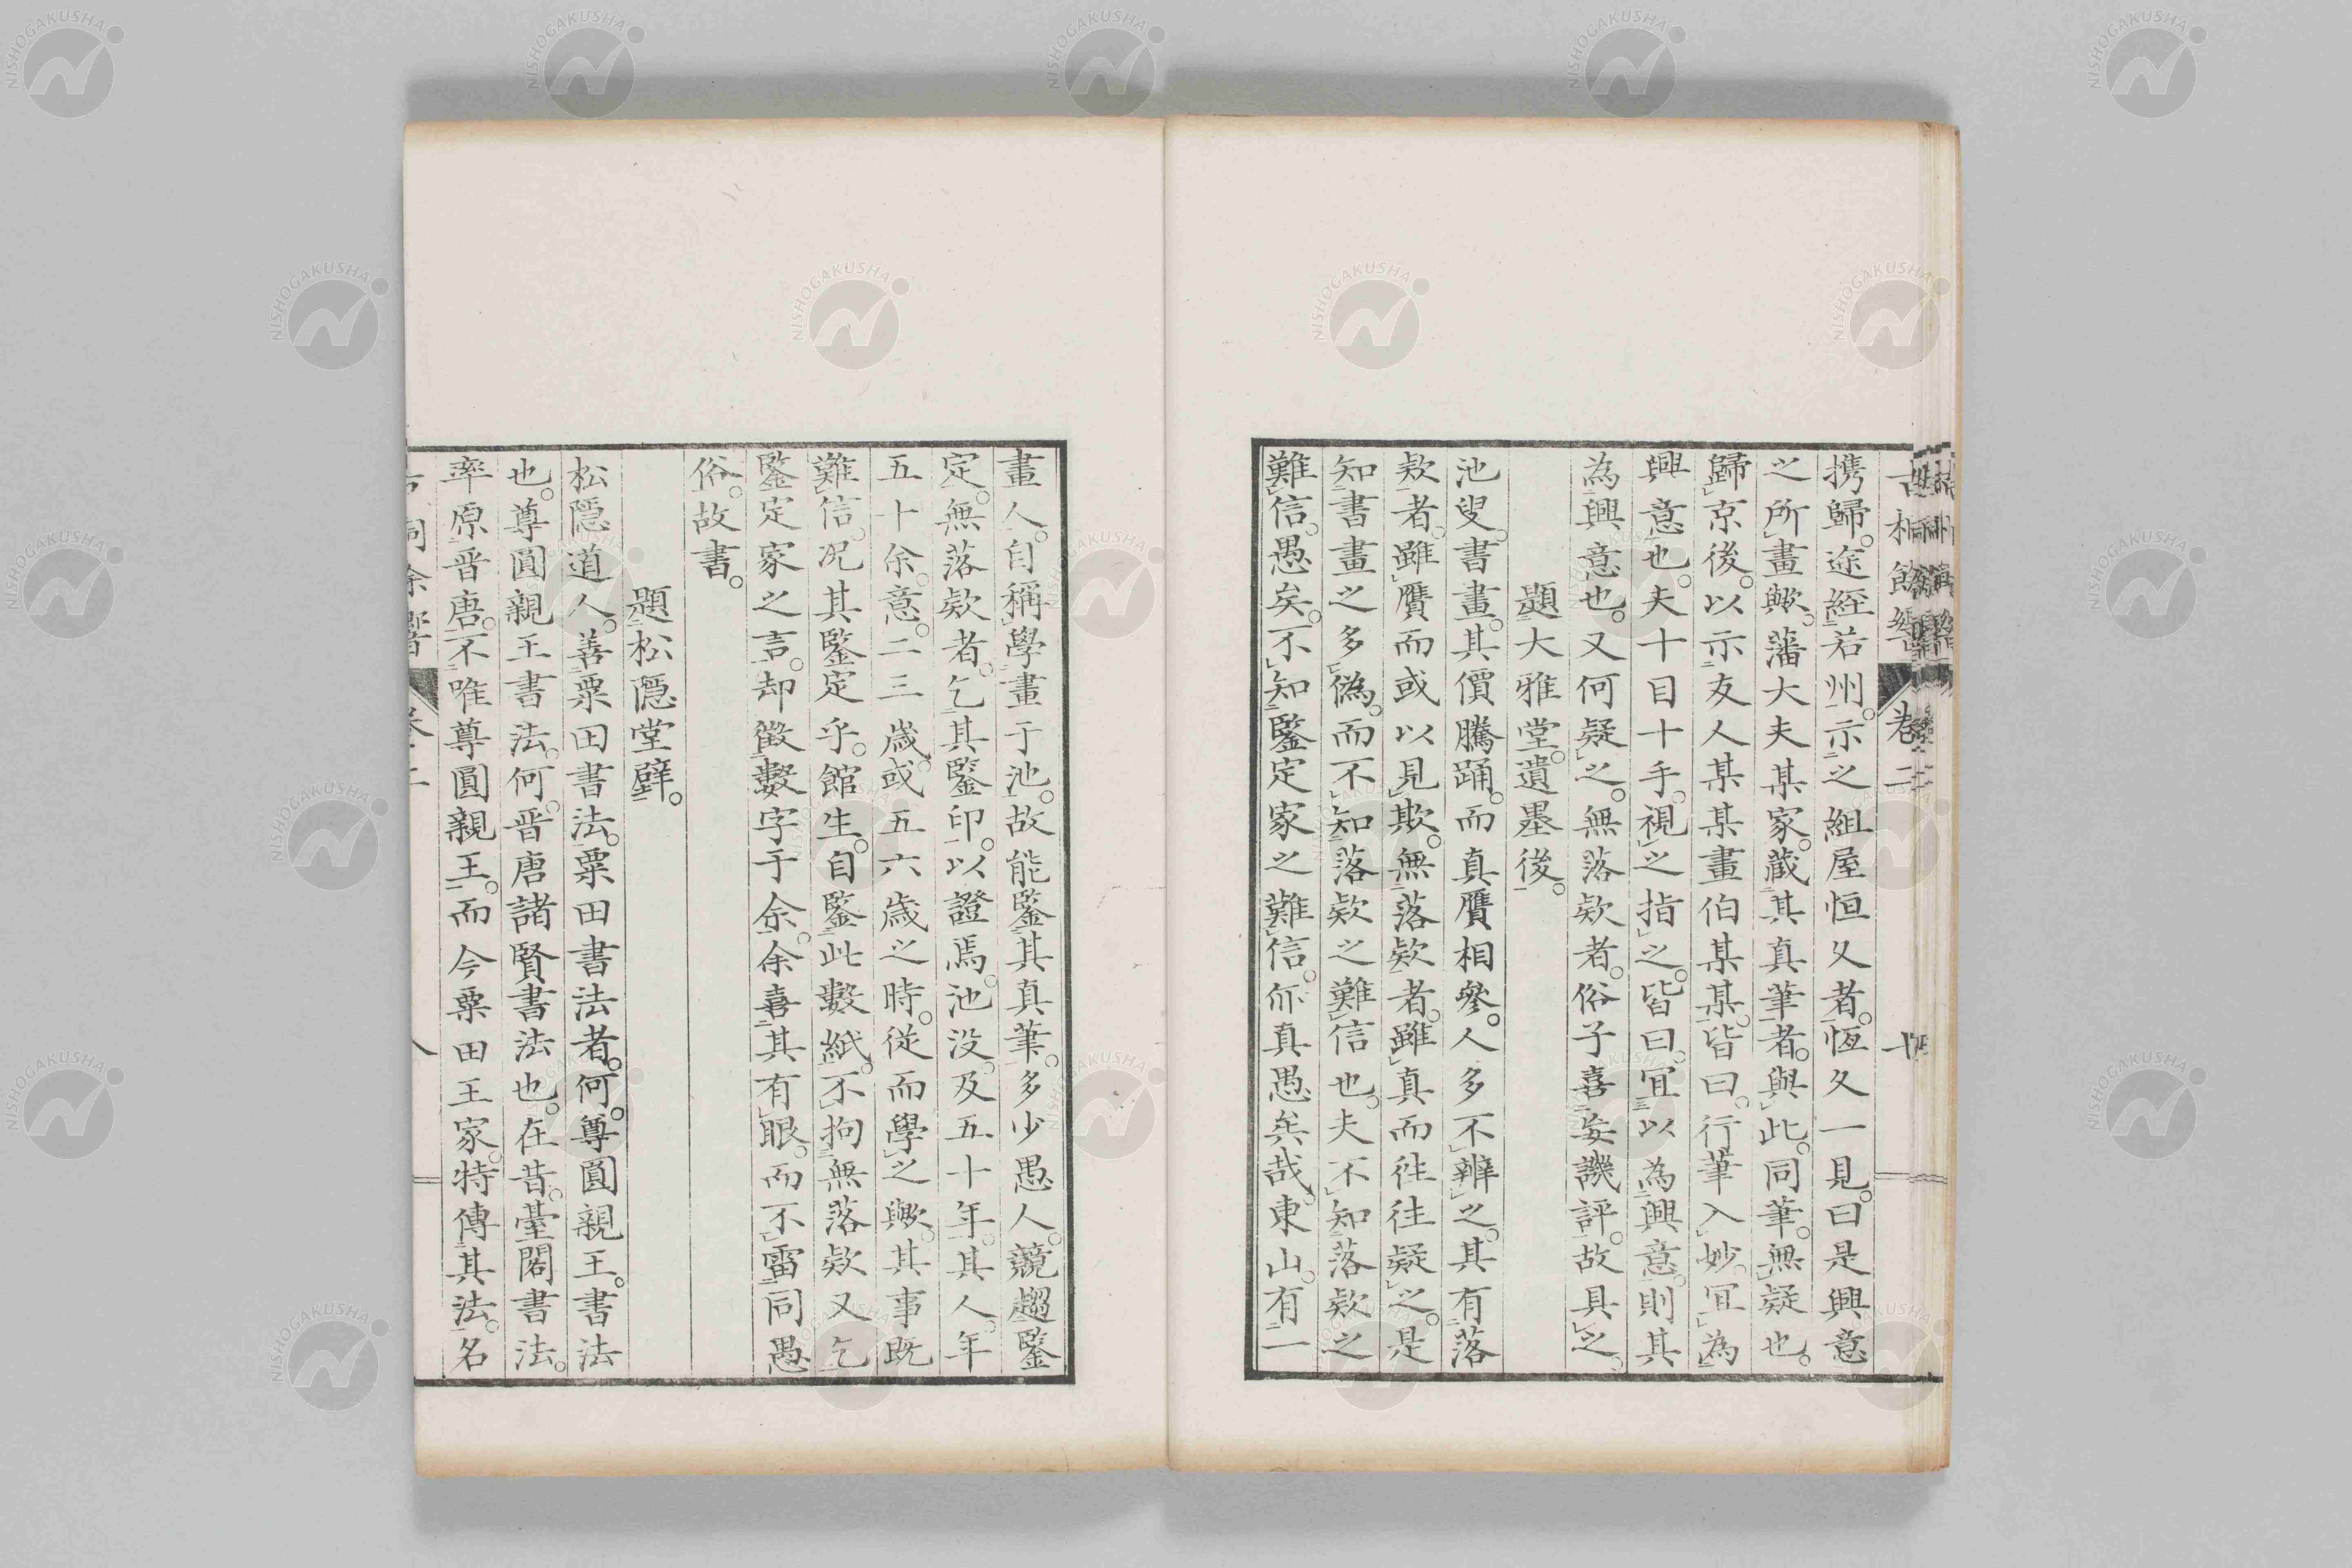 携歸。途經若州。示之組屋恒久者。恆久一見。曰是興意
之所畫歟。藩大夫某家。藏其真筆者。與此。同筆。無疑也。
歸京後。以示友人某某畫伯某某。皆曰。行筆入妙。宜為
興意也。夫十目十手。視之指之。皆曰。宜以為興意。則其
為興意也。又何疑之。無落欵者。俗子喜妄譏評。故具之。
題大雅堂。遺墨後。
池叟。書畫。其價騰踊。而真贋相參。人多不辨之。其有落
欵者。雖贋而或以見欺。無落欵者。雖真而往往疑之。是
知書畫之多偽。而不知落欵之難信也。夫不知落欵之
難信。愚矣。不知鑒定家之難信。尒真愚矣哉。東山。有一
畫人。自稱學畫于池。故能鑒其真筆。多少愚人。競趨鑒
定。無落欵者。乞其鑒印。以證焉。池没。及五十年。其人。年
五十余。意。二三歲。或五六歲之時。從而學之歟。其事既
難信。况其鑒定乎。館生。自鑒此數紙。不拘無落欵又乞
鑒定家之言。却徵數字于余。余喜其有眼。而不雷同愚
俗。故書。
題松隱堂壁。
松隱道人。善粟田書法。粟田書法者。何。尊圓親王。書法
也。尊圓親王書法。何。晋唐諸賢書法也。在昔。臺閣書法。
率原晋唐。不唯尊圓親王。而今粟田王家。特傳其法。名
卷二